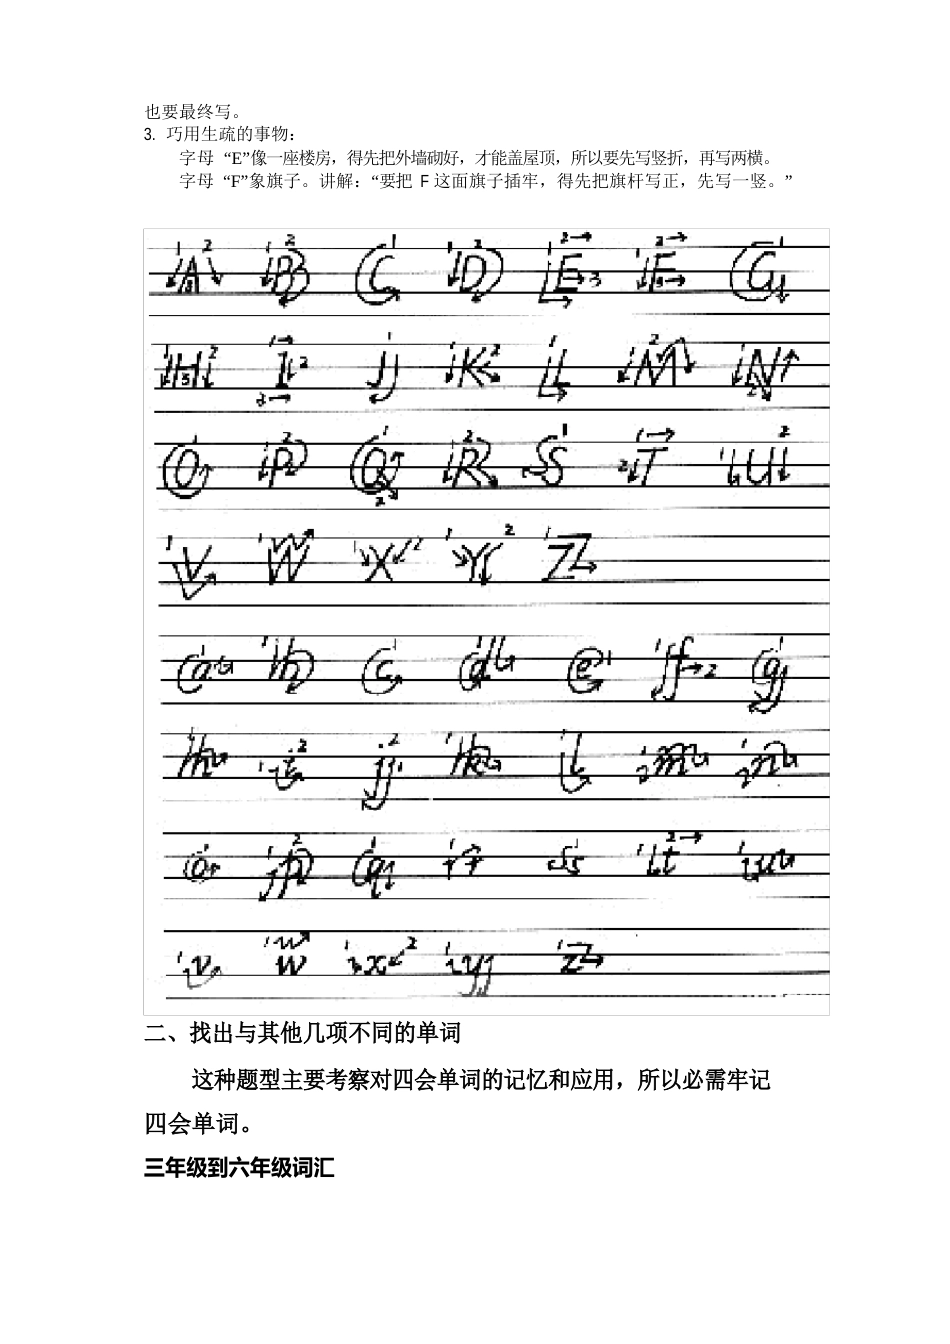 也要最终写。
3. 巧用生疏的事物：
字母 “E”像一座楼房，得先把外墙砌好，才能盖屋顶，所以要先写竖折，再写两横。
字母 “F”象旗子。讲解：“要把 F 这面旗子插牢，得先把旗杆写正，先写一竖。”
A B C D E F G
H I J K L M N
O P Q R S T U
V W X Y Z
a b c d e f g
h i j k l m n
o p q r s t u
v w x y z
二、找出与其他几项不同的单词
这种题型主要考察对四会单词的记忆和应用，所以必需牢记
四会单词。
三年级到六年级词汇